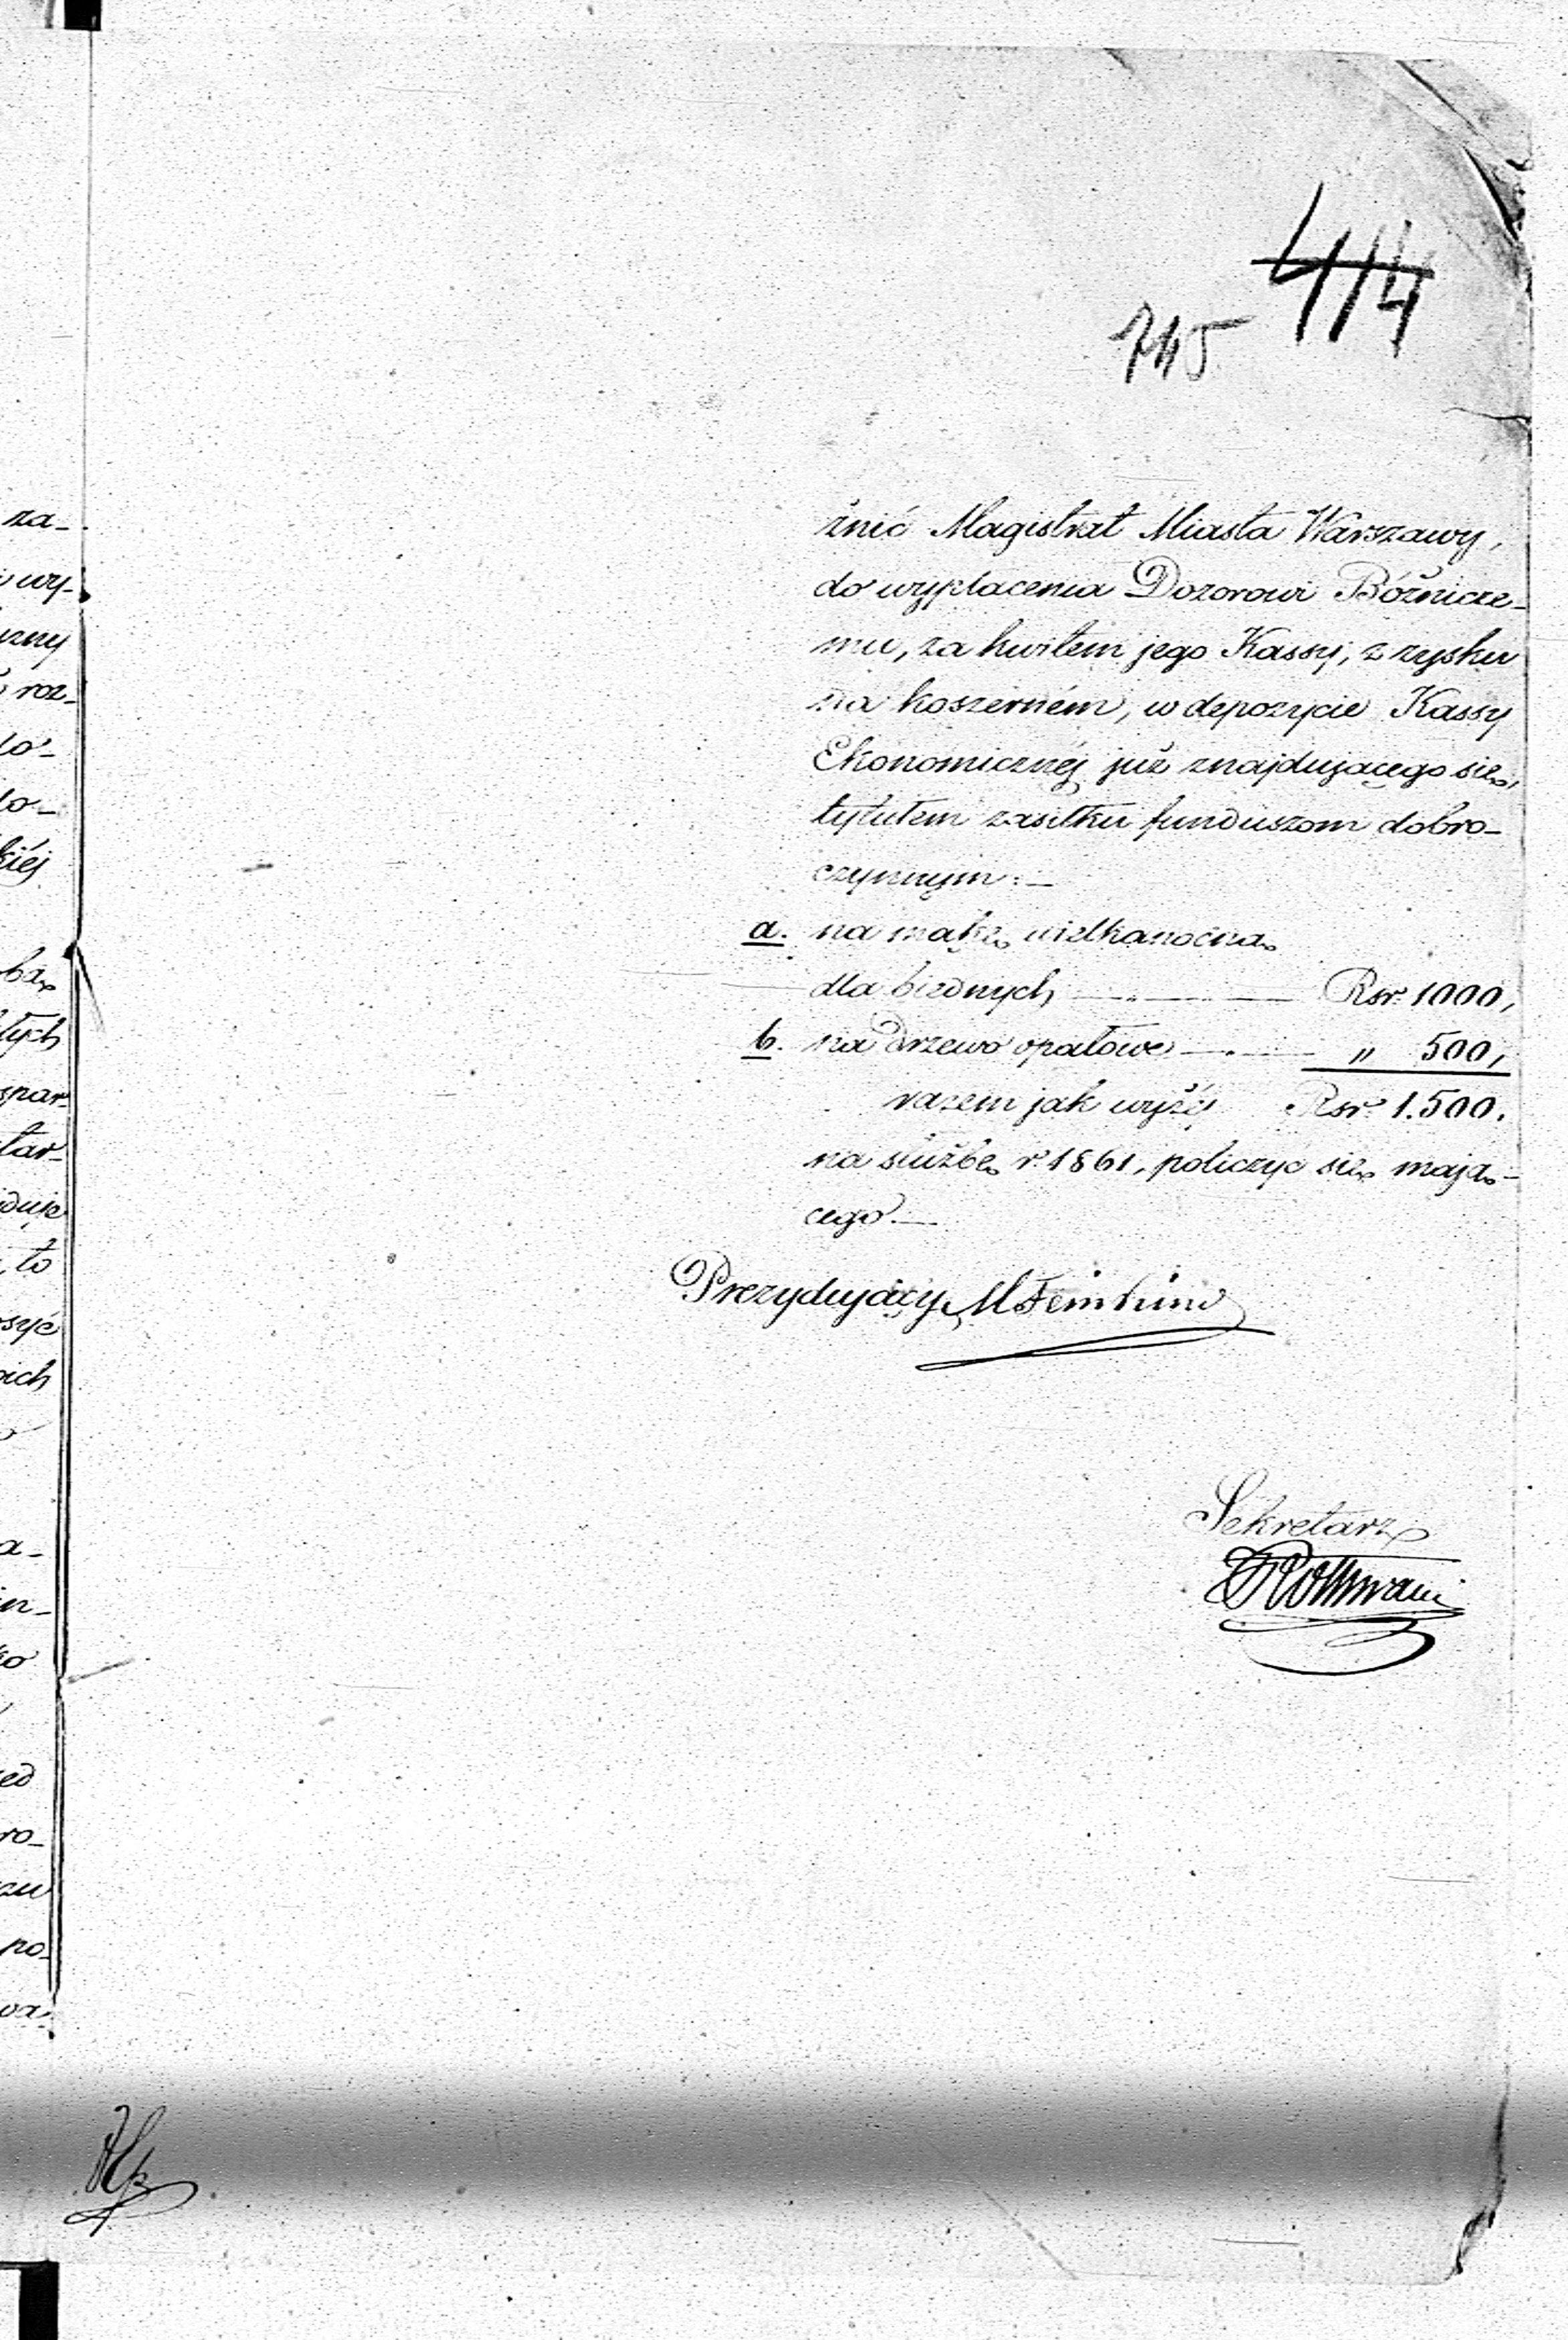 414
745
żnić Magistrat Miasta Warszawy,
do wypłacenia Dozorowi Bóżnicze-
mu, za kwitem jego Kassy, z zysku
na koszerném, w depozycie Kassy
Ekonomicznéj już znajdującego się,
tytułem zasiłku funduszom dobro-
czynnym:—
a. na mąkę wielkanocną
dla biednych — „ — Rsr. 1000,
b. na drzewo opałowe — „ 500,
razem jak wyżéj Rsr. 1.500.
na służbę r. 1861, policzyć się mają-
cego.—
Prezydujący M
Sekretarz
za-
wy-
roz-
kiéj
tych
spar-
tar-
to
ich
po-